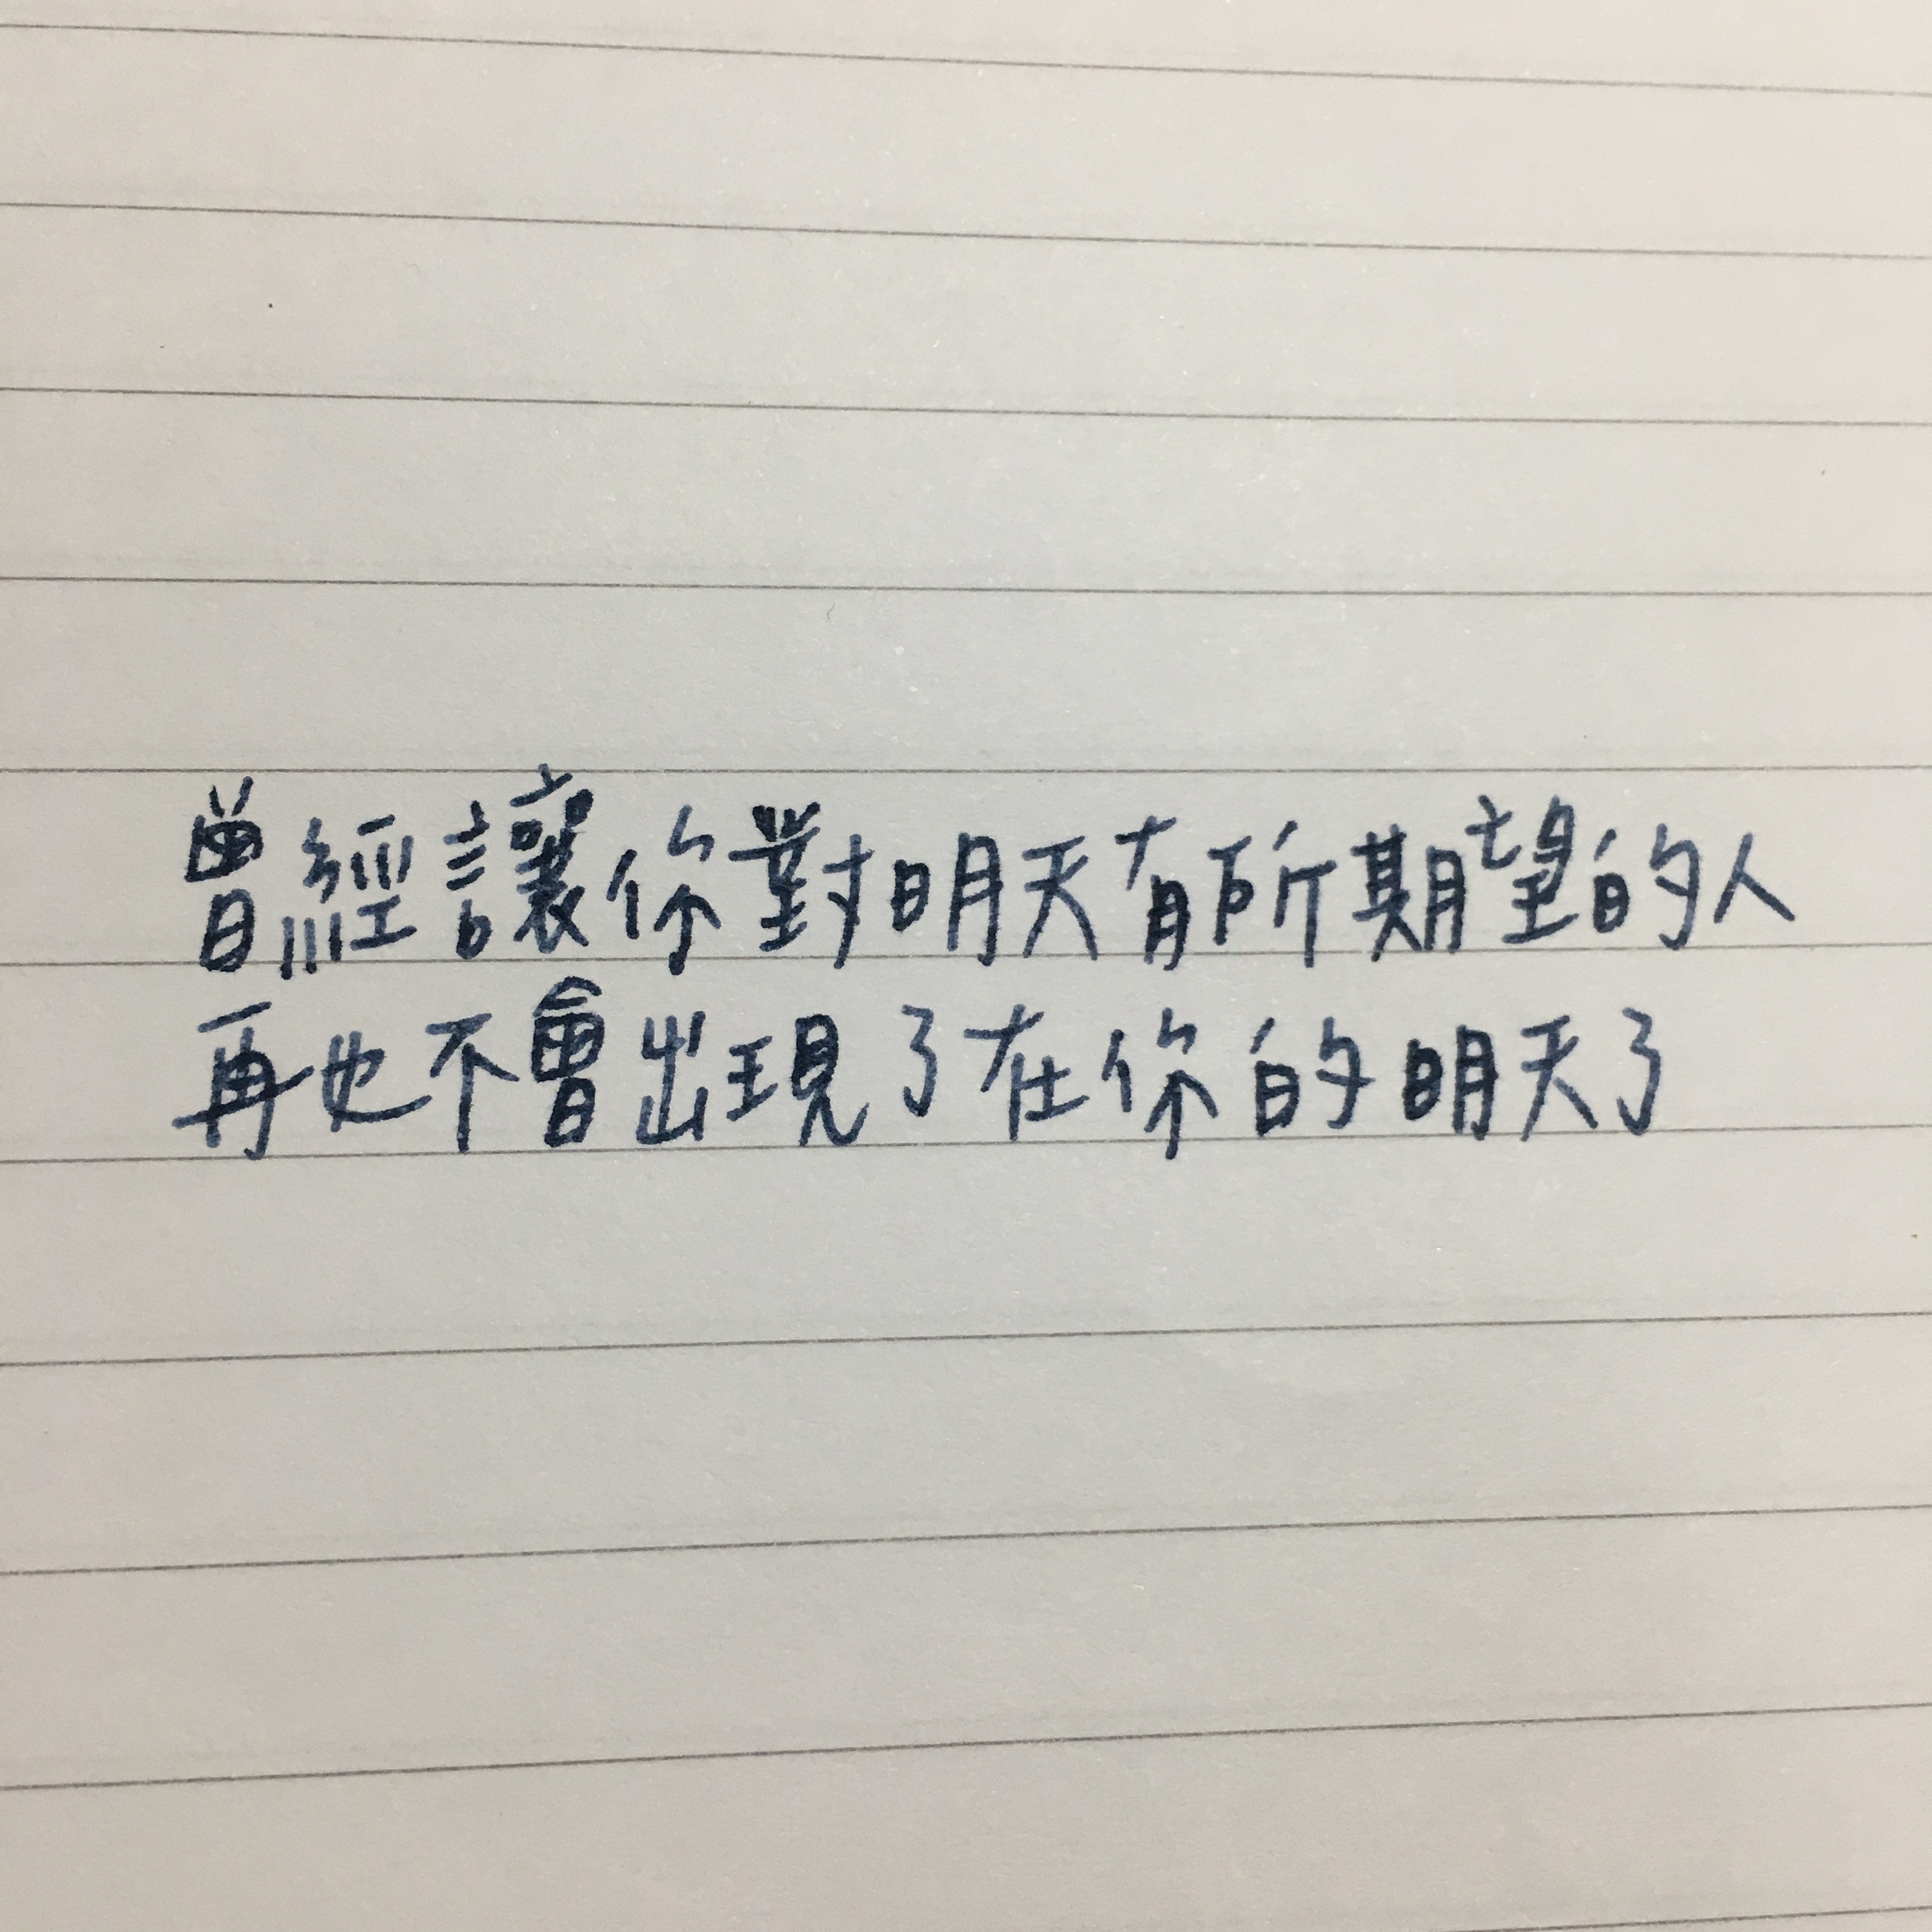 曾經讓你對明天有所期望的人
再也不會出現了在你的明天了